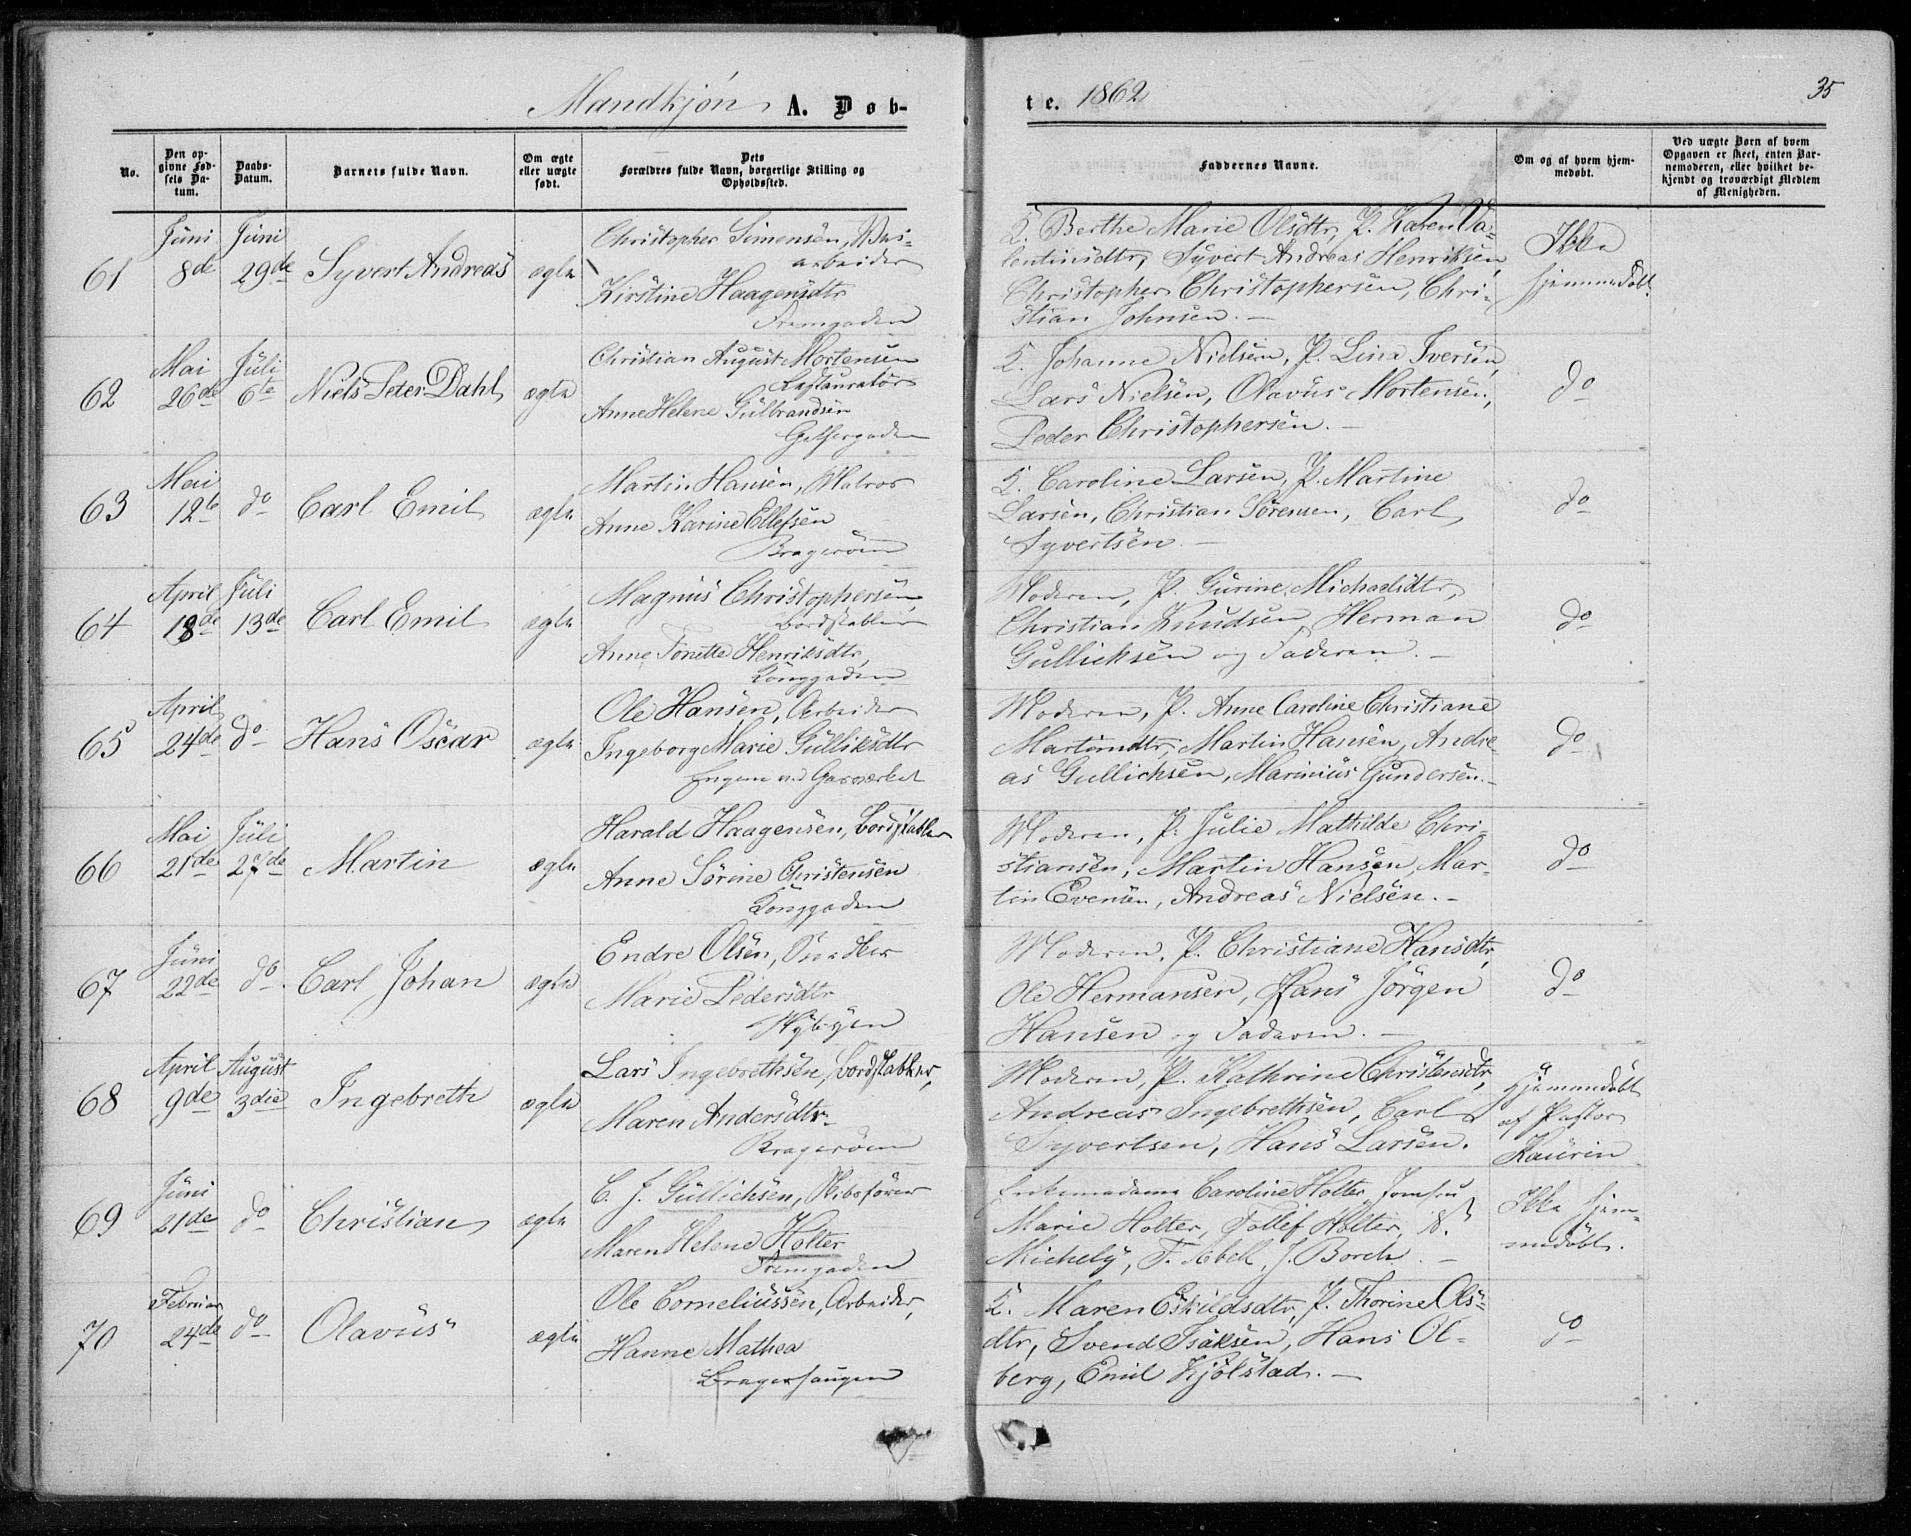 Mandkjön A. Døb-
te. 1862 35
No.
Den op-
givne Fød-
sels Da-
tum.
Daabs-
Datum.
Barnets fulde Navn.
Om ægte
eller uægte
født.
Dets
Forældres fulde Navn, borgerlige Stilling og
Opholdssted.
Faddernes Navne.
Om og af hvem hjem-
medøbt.
Ved uægte Børn af hvem
Opgaven er skeet, enten Bar-
nemoderen, eller hvilket be-
kjendt og troværdigt Medlem
af Menigheden.
61
Juni
8de
Juni
29de
Syvert Andreas
ægte
Christopher Simensen,
arbeider
Kirstine Haagensdtr
Strømgaden
K. Berthe Marie Olsdtr, P. Karen Va-
lentinsdtr, Syvert Andreas Henriksen,
Christopher Christophersen, Chri-
stian Johnsen. -
Ikke
hjemmedøbt
62
Mai
26de
Juli
6te
Niels Peter Dahl
ægte
Christian August Mortensen
Restauratør
Anne Helene Gulbrandsen
K. Johanne Nielsen, P. Lina Iversen,
Lars Nielsen, Olavus Mortensen,
Peder Christophersen. -
do
63
Mai
12te
do
Carl Emil
ægte
Martin Hansen, Matros
Anne Karine Ellefsen
Bragerøen
K. Caroline Larsen, P. Martine
Larsen, Christian Sörensen, Carl
Syvertsen. -
do
64
April
18de
Juli
13de
Carl Emil
ægte
Magnus Christophersen,
Bordstabler
Anne Tonette Henriksdtr,
Konggaden
Moderen, P. Gurine Michaelsdtr,
Christian Knudsen, Herman
Gullicksen og Faderen. -
do
65
April
24de
do
Hans Oscar
ægte
Ole Hansen, Arbeider
Ingeborg Marie Gulliksdtr
Engen ved Gasværket
Moderen, P. Anne Caroline Christiane
Martinsdtr, Martin Hansen, Andre-
as Gullichsen, Marinius Gundersen. -
do
66
Mai
21de
Juli
27de
Martin
ægte
Harald Haagensen, Bordstabler
Anne Sörine Christensen
Konggaden
Moderen, P. Julie Mathilde Chri-
stiansen, Martin Hansen, Mar-
tin Evensen, Andreas Nielsen. -
do
67
Juni
22de
do
Carl Johan
ægte
Endre Olsen, Snedker
Marie Pedersdtr
Nybyen
Moderen, P. Christiane Hansdtr,
Ole Hermansen, Hans Jörgen
Hansen og Faderen. -
do
68
April
9de
August
3die
Ingebreth
ægte
Lars Ingebrethsen, Bordstabler,
Maren Andersdtr
Bragerøen
Moderen, P. Kathrine Christensdtr,
Andreas Ingebrethsen, Carl
Syvertsen, Hans Larsen.
Hjemmedøbt
af Pastor
Kaurin
69
Juni
21de
do
Christian
ægte
C. J. Gullichsen, Skibsfører
Maren Helene Holter
Strømgaden
Enkemadame Caroline Holter, Jomfru
Marie Holter, Tollef Holter, N.
Michely, F. Abel, J. Borch. -
Ikke hjem-
medøbt.
70
Februar
24de
do
Olavus
ægte
Ole Corneliussen, Arbeider,
Hanne Mathea
Bragerhaugen
K. Maren Eskildsdtr, P. Thorine Ols-
dtr, Svend Isaksen, Hans Ol-
berg, Emil Kjölstad. -
do